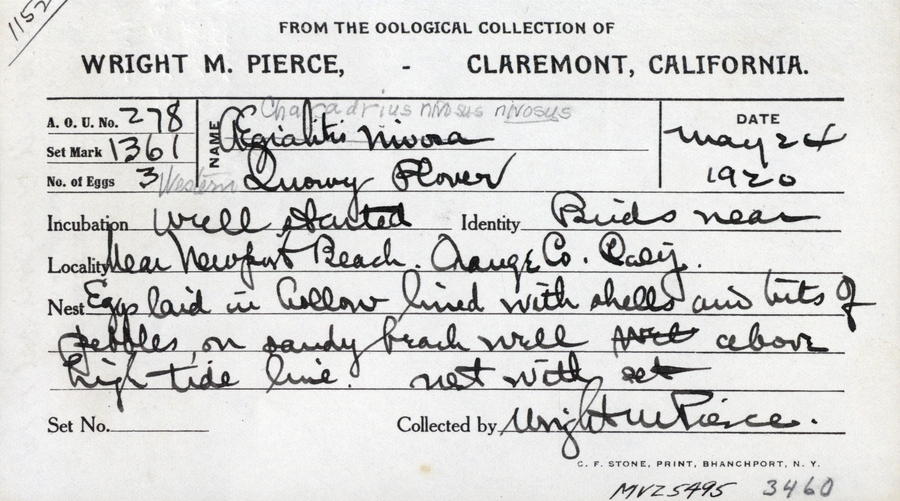 1152
FROM THE OOLOGICAL COLLECTION OF
WRIGHT M. PIERCE, - CLAREMONT, CALIFORNIA.
Charadrius nivosus nivosus
A. O. U. No. 278
NAME Aegialitis nivosa
DATE May 24
1920
Set Mark 1361
No. of Eggs 3
Western Snowy Plover
Incubation Well started Identity Birds near
Locality Near Newport Beach. Orange Co. Calif.
Nest Eggs laid in hollow lined with shells and bits of
pebbles, on sandy beach well above
high tide line. nest with set
Set No.
Collected by Wright M Pierce.
C. F. STONE, PRINT, BHANCHPORT, N. Y.
MVZ5495 3460